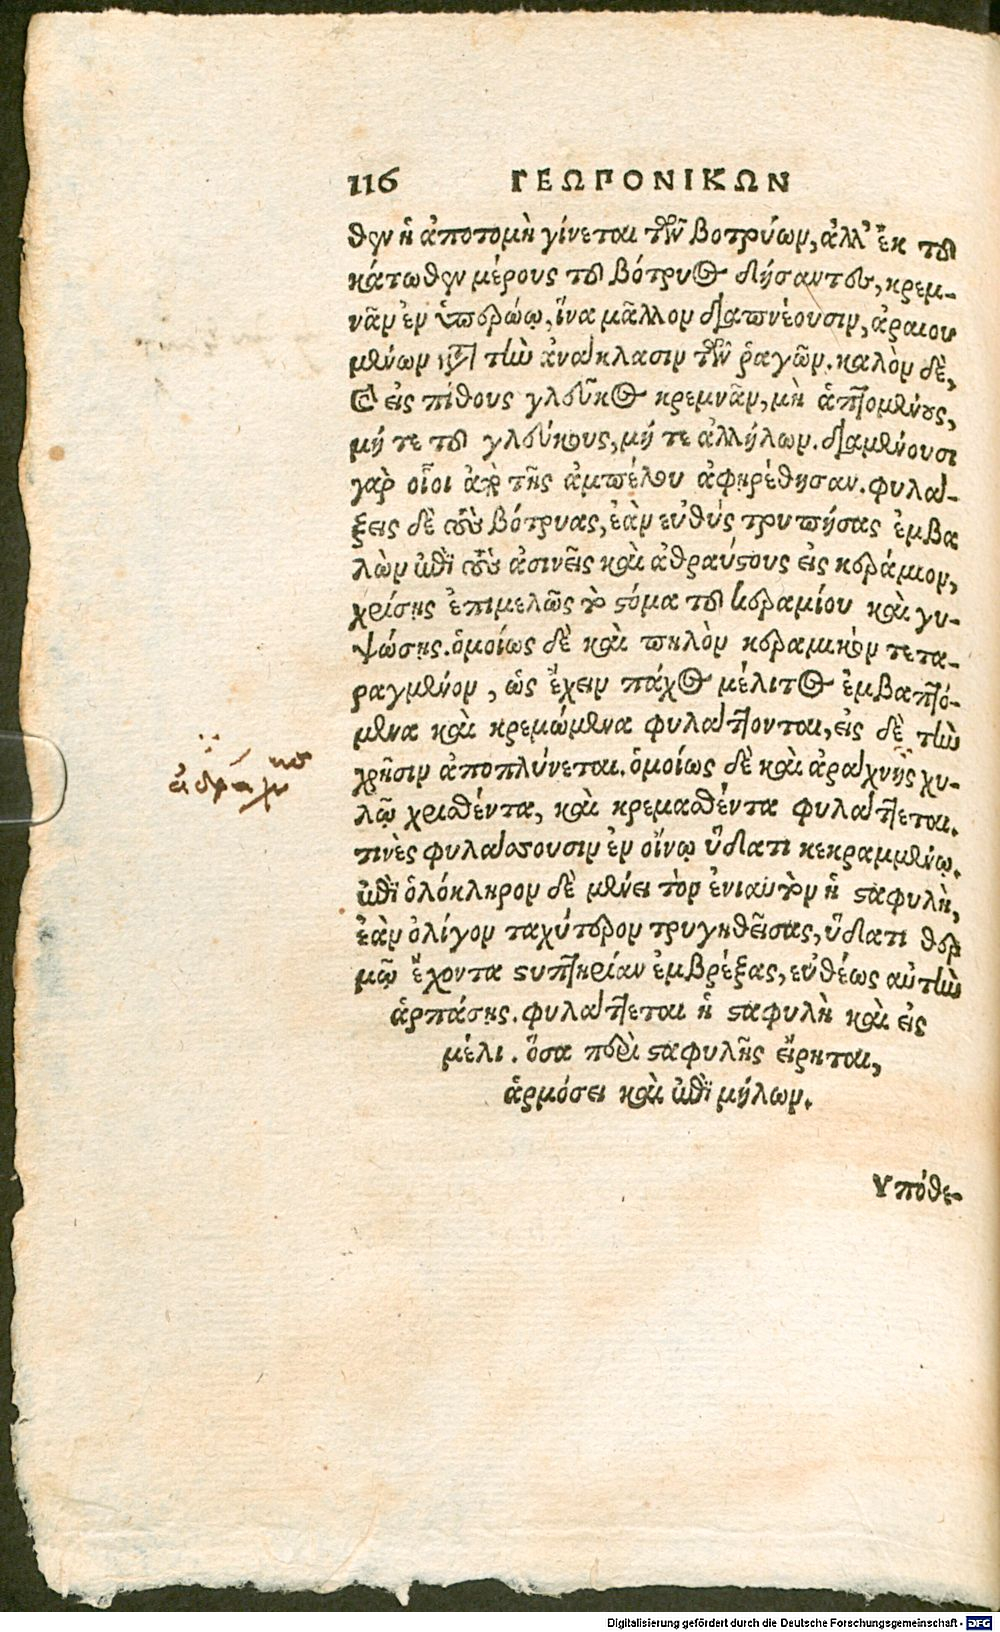 116 ΓΕΩΠΟΝΙΚΩΝ
θεν ἡ ἀποτομὴ γίνεται τῶν βοτρύων, ἀλλ' ἐκ τοῦ
κάτωθεν μέρους τοῦ βότρυος δήσαντες, κρεμ-
νᾶν ἐν ὑπερώῳ, ἵνα μᾶλλον διαπνέουσιν, ἀραιου
μένων κατὰ τὴν ἀνάκλασιν τῶν ῥαγῶν. καλὸν δὲ,
καὶ εἰς πίθους γλεῦκος κρεμνᾶν, μὴ ἁπτομένους,
μή τε τοῦ γλεύκους, μή τε ἀλλήλων. διαμένουσι
γὰρ οἷοι ἀπὸ τῆς ἀμπέλου ἀφῃρέθησαν. φυλά-
ξεις δὲ τοὺς βότρυας, ἐὰν εὐθὺς τρυπήσας ἐμβα
λὼν ἐπὶ τοὺς ἀσινεῖς καὶ ἀθραύστους εἰς κεράμιον,
χρίσῃς ἐπιμελῶς τὸ στόμα τοῦ κεραμίου καὶ γυ-
ψώσῃς. ὁμοίως δὲ καὶ πηλὸν κεραμικὸν τετα-
ραγμένον, ὡς ἔχειν πάχος μέλιτος ἐμβαπτό-
μενα καὶ κρεμώμενα φυλάττονται, εἰς δὲ τὴν
χρῆσιν ἀποπλύνεται. ὁμοίως δὲ καὶ ἀράχνης χυ-
λῷ χρισθέντα, καὶ κρεμασθέντα φυλάττεται.
τινὲς φυλάσσουσιν ἐν οἴνῳ ὕδατι κεκραμμένῳ.
ἐπὶ ὁλόκληρον δὲ μένει τὸν ἐνιαυτὸν ἡ σταφυλὴ,
ἐὰν ὀλίγον ταχύτερον τρυγηθεῖσας, ὕδατι θερ
μῷ ἔχοντα στυπτηρίαν ἐμβρέξας, εὐθέως αὐτὴν
ἁρπάσῃς. φυλάττεται ἡ σταφυλὴ καὶ εἰς
μέλι. ὅσα περὶ σταφυλῆς εἴρηται,
ἁρμόσει καὶ ἐπὶ μήλων.
Υπόθε-
Digitalisierung gefördert durch die Deutsche Forschungsgemeinschaft - DFG